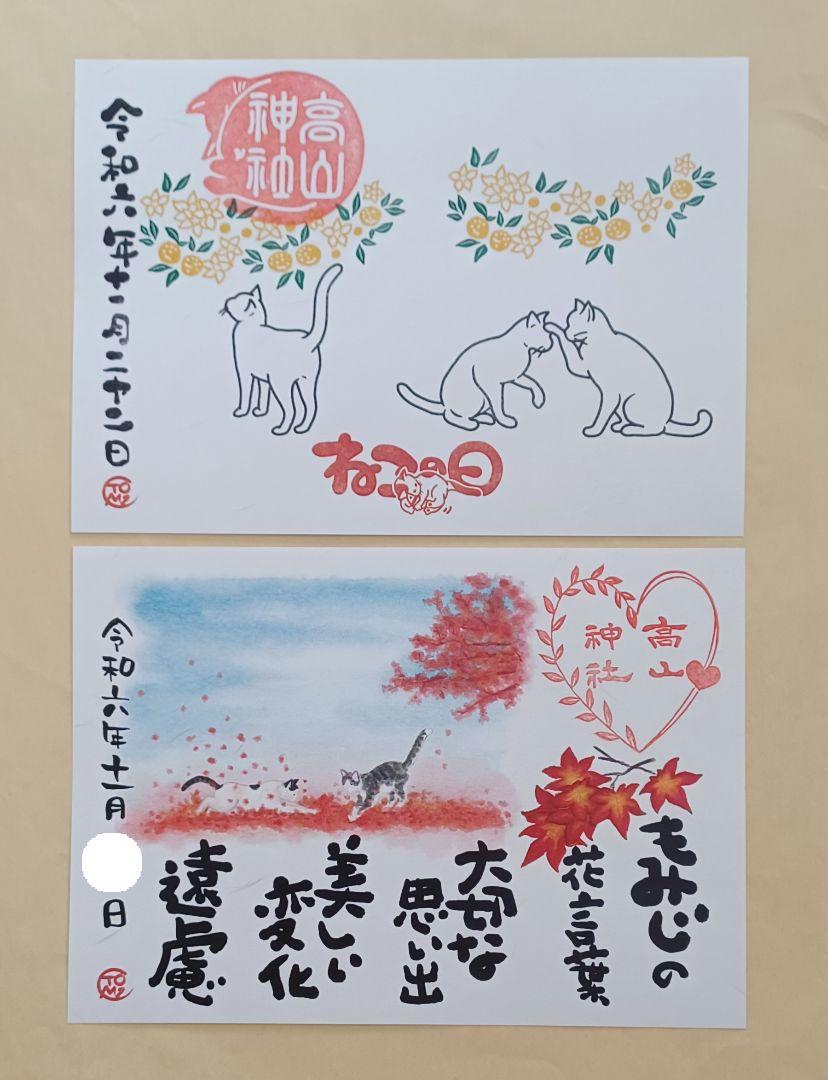 高山
神社
令和六年十一月二十二日
ねこの日
高山
神社
もみじの
花言葉
大切な
思い出
美しい
変化
遠慮
令和六年十一月
日